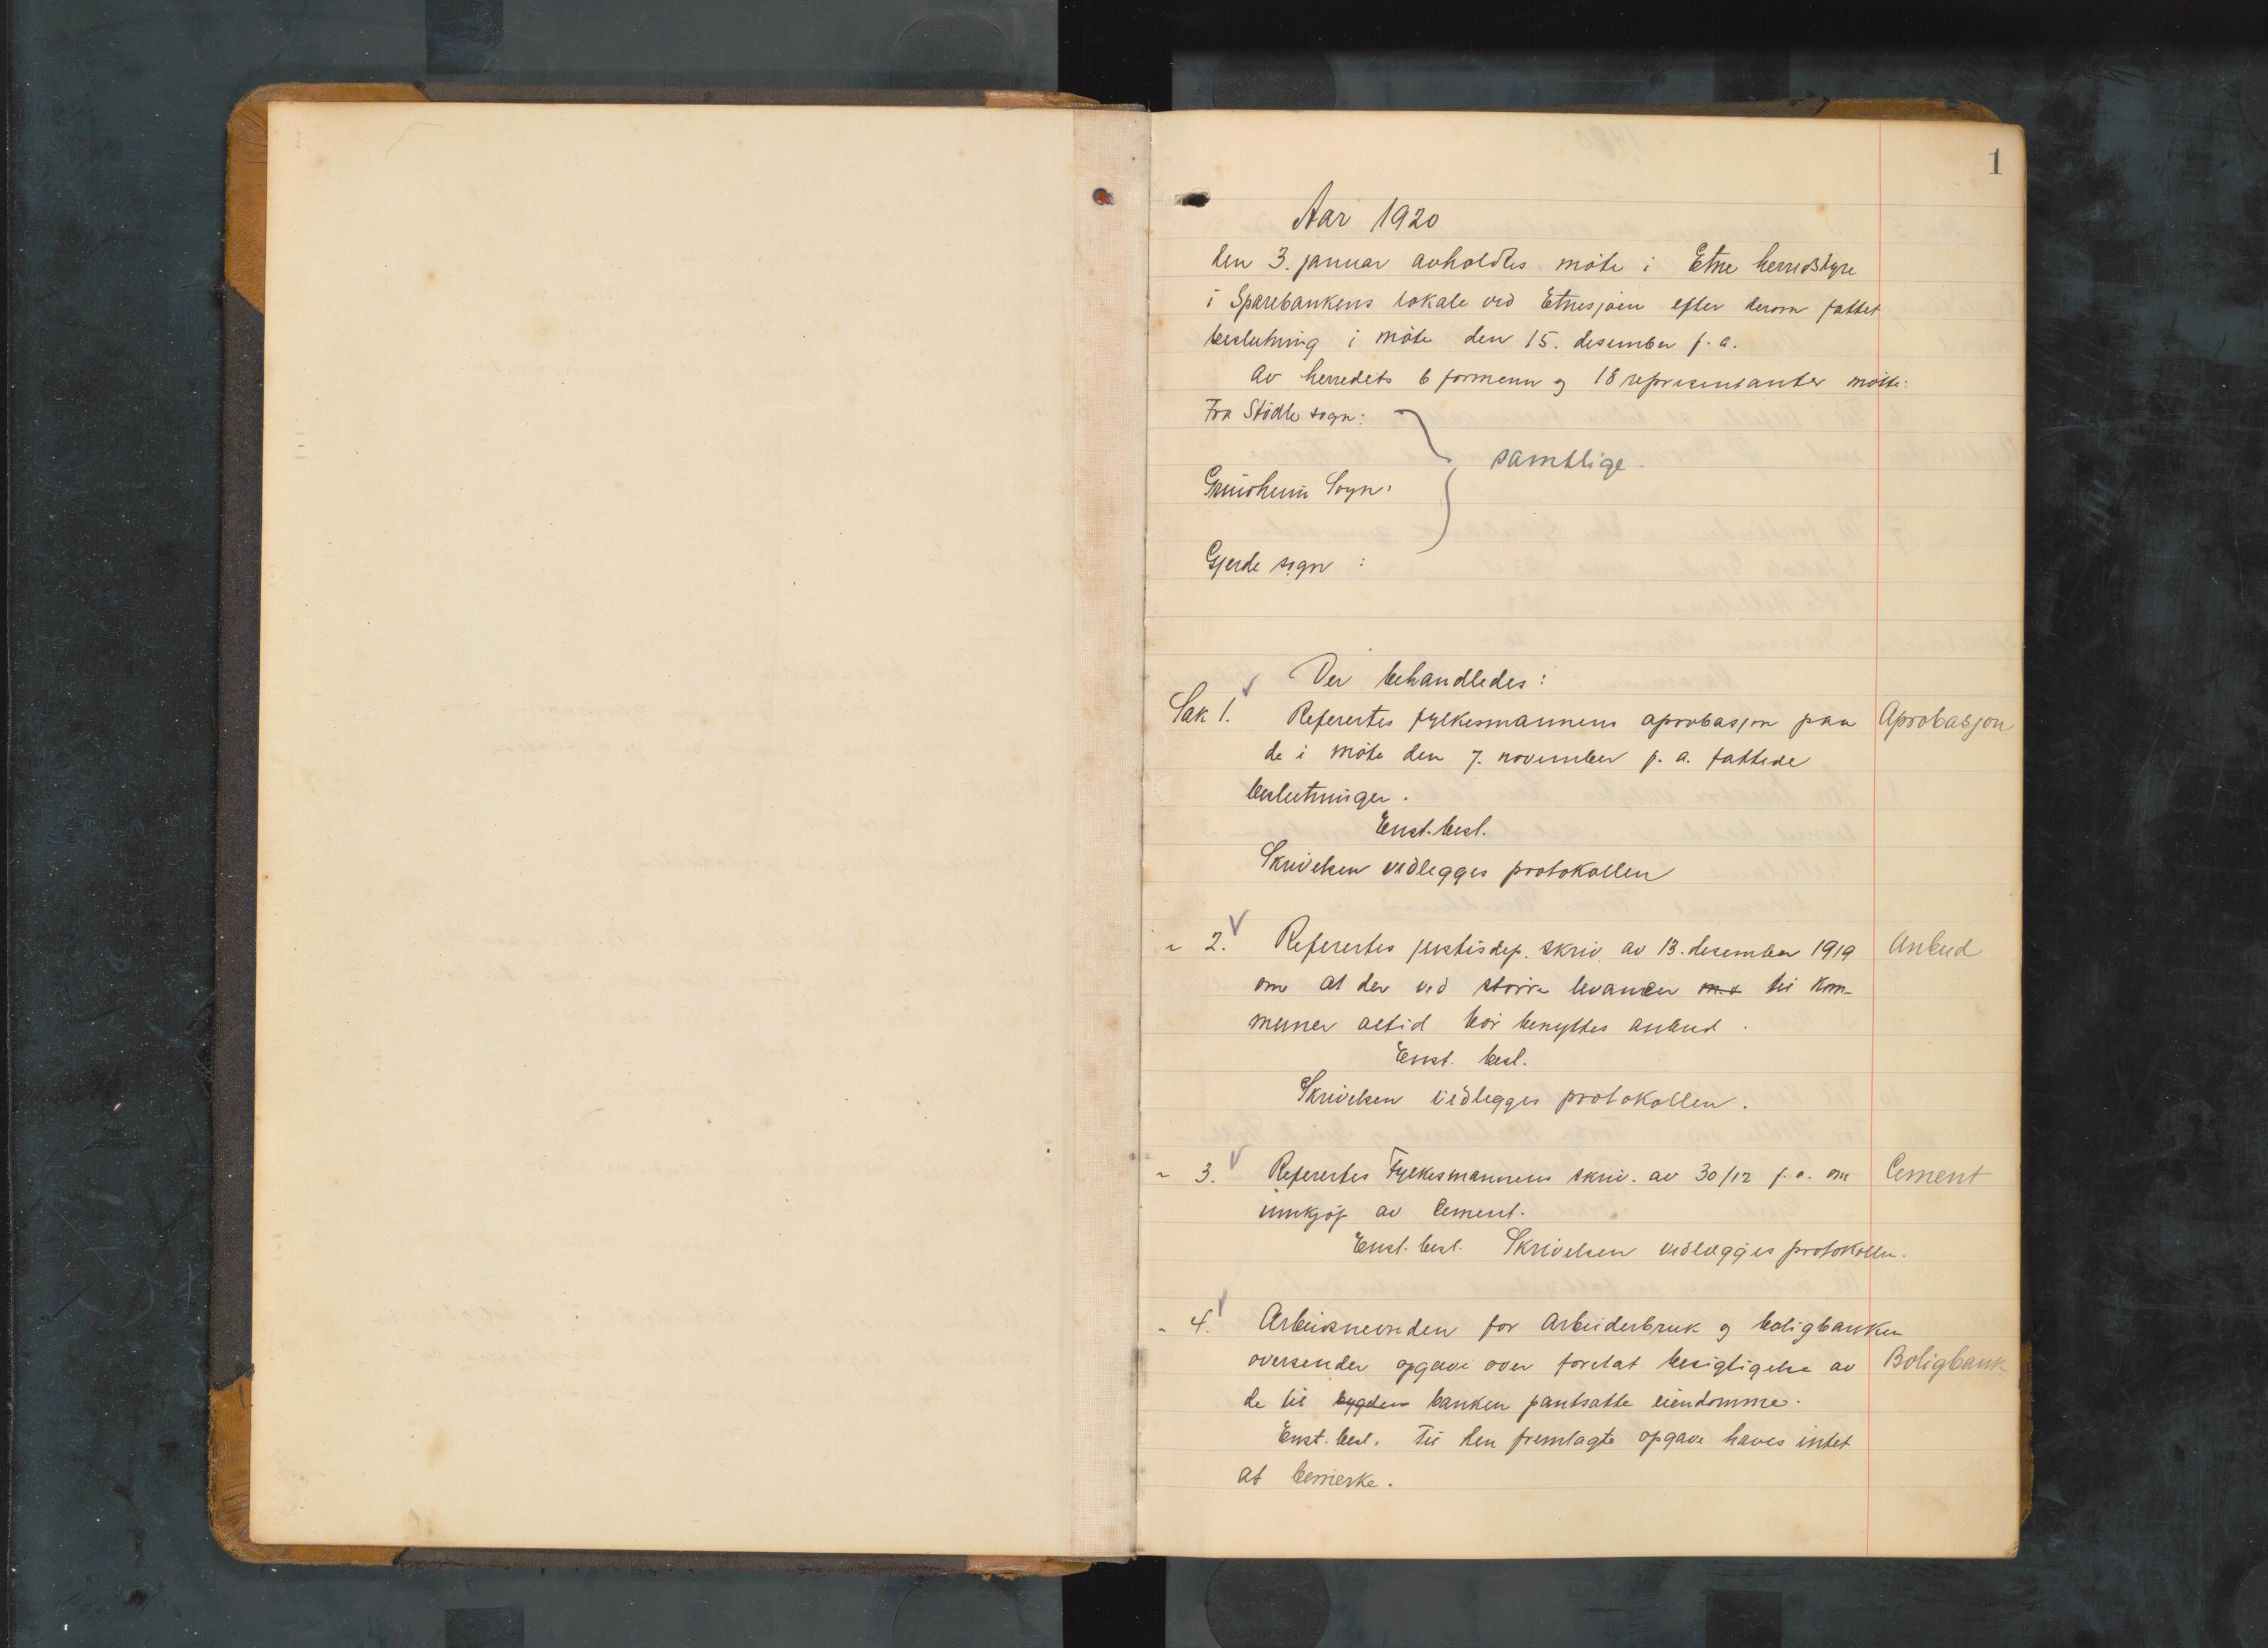 1
Aar 1920
den 3. januar avholdtes möte i Etne herredstyre
i Sparebankens lokale ved Etnesjöen efter derom fattet
beslutning i möte den 15. desember f. a.
Av herredets 6 formenn og 18 representanter mötte:
Fra Stödle sogn:
samtlige.
Grindheim Sogn:
Gjerde sogn :
Der behandledes:
Sak 1. Referertes fylkesmannens aprobasjon paa Aprobasjon
de i möte den 7. november f. a. fattede
beslutninger.
Enst. besl.
Skrivelsen vedlegges protokollen
" 2. Referertes justisdep. skriv. av 13. desember 1919 Anbud
om at der ved större levancer m.v. til kom-
muner altid bör benyttes anbud.
Enst. besl.
Skrivelsen vedlegges protokollen.
" 3. Referertes Fylkesmannens skriv. av 30/12 f. a. om Cement
innkjöp av Cement.
Enst. besl. Skrivelsen vedlegges protokollen.
" 4. Arbeidsnevnden for Arbeiderbruk og boligbanken
oversender opgave over foretat besigtigelse av Boligbank
de til bygden banken pantsatte eiendomme.
Enst. besl. Til den fremlagte opgave haves intet
at bemerke.